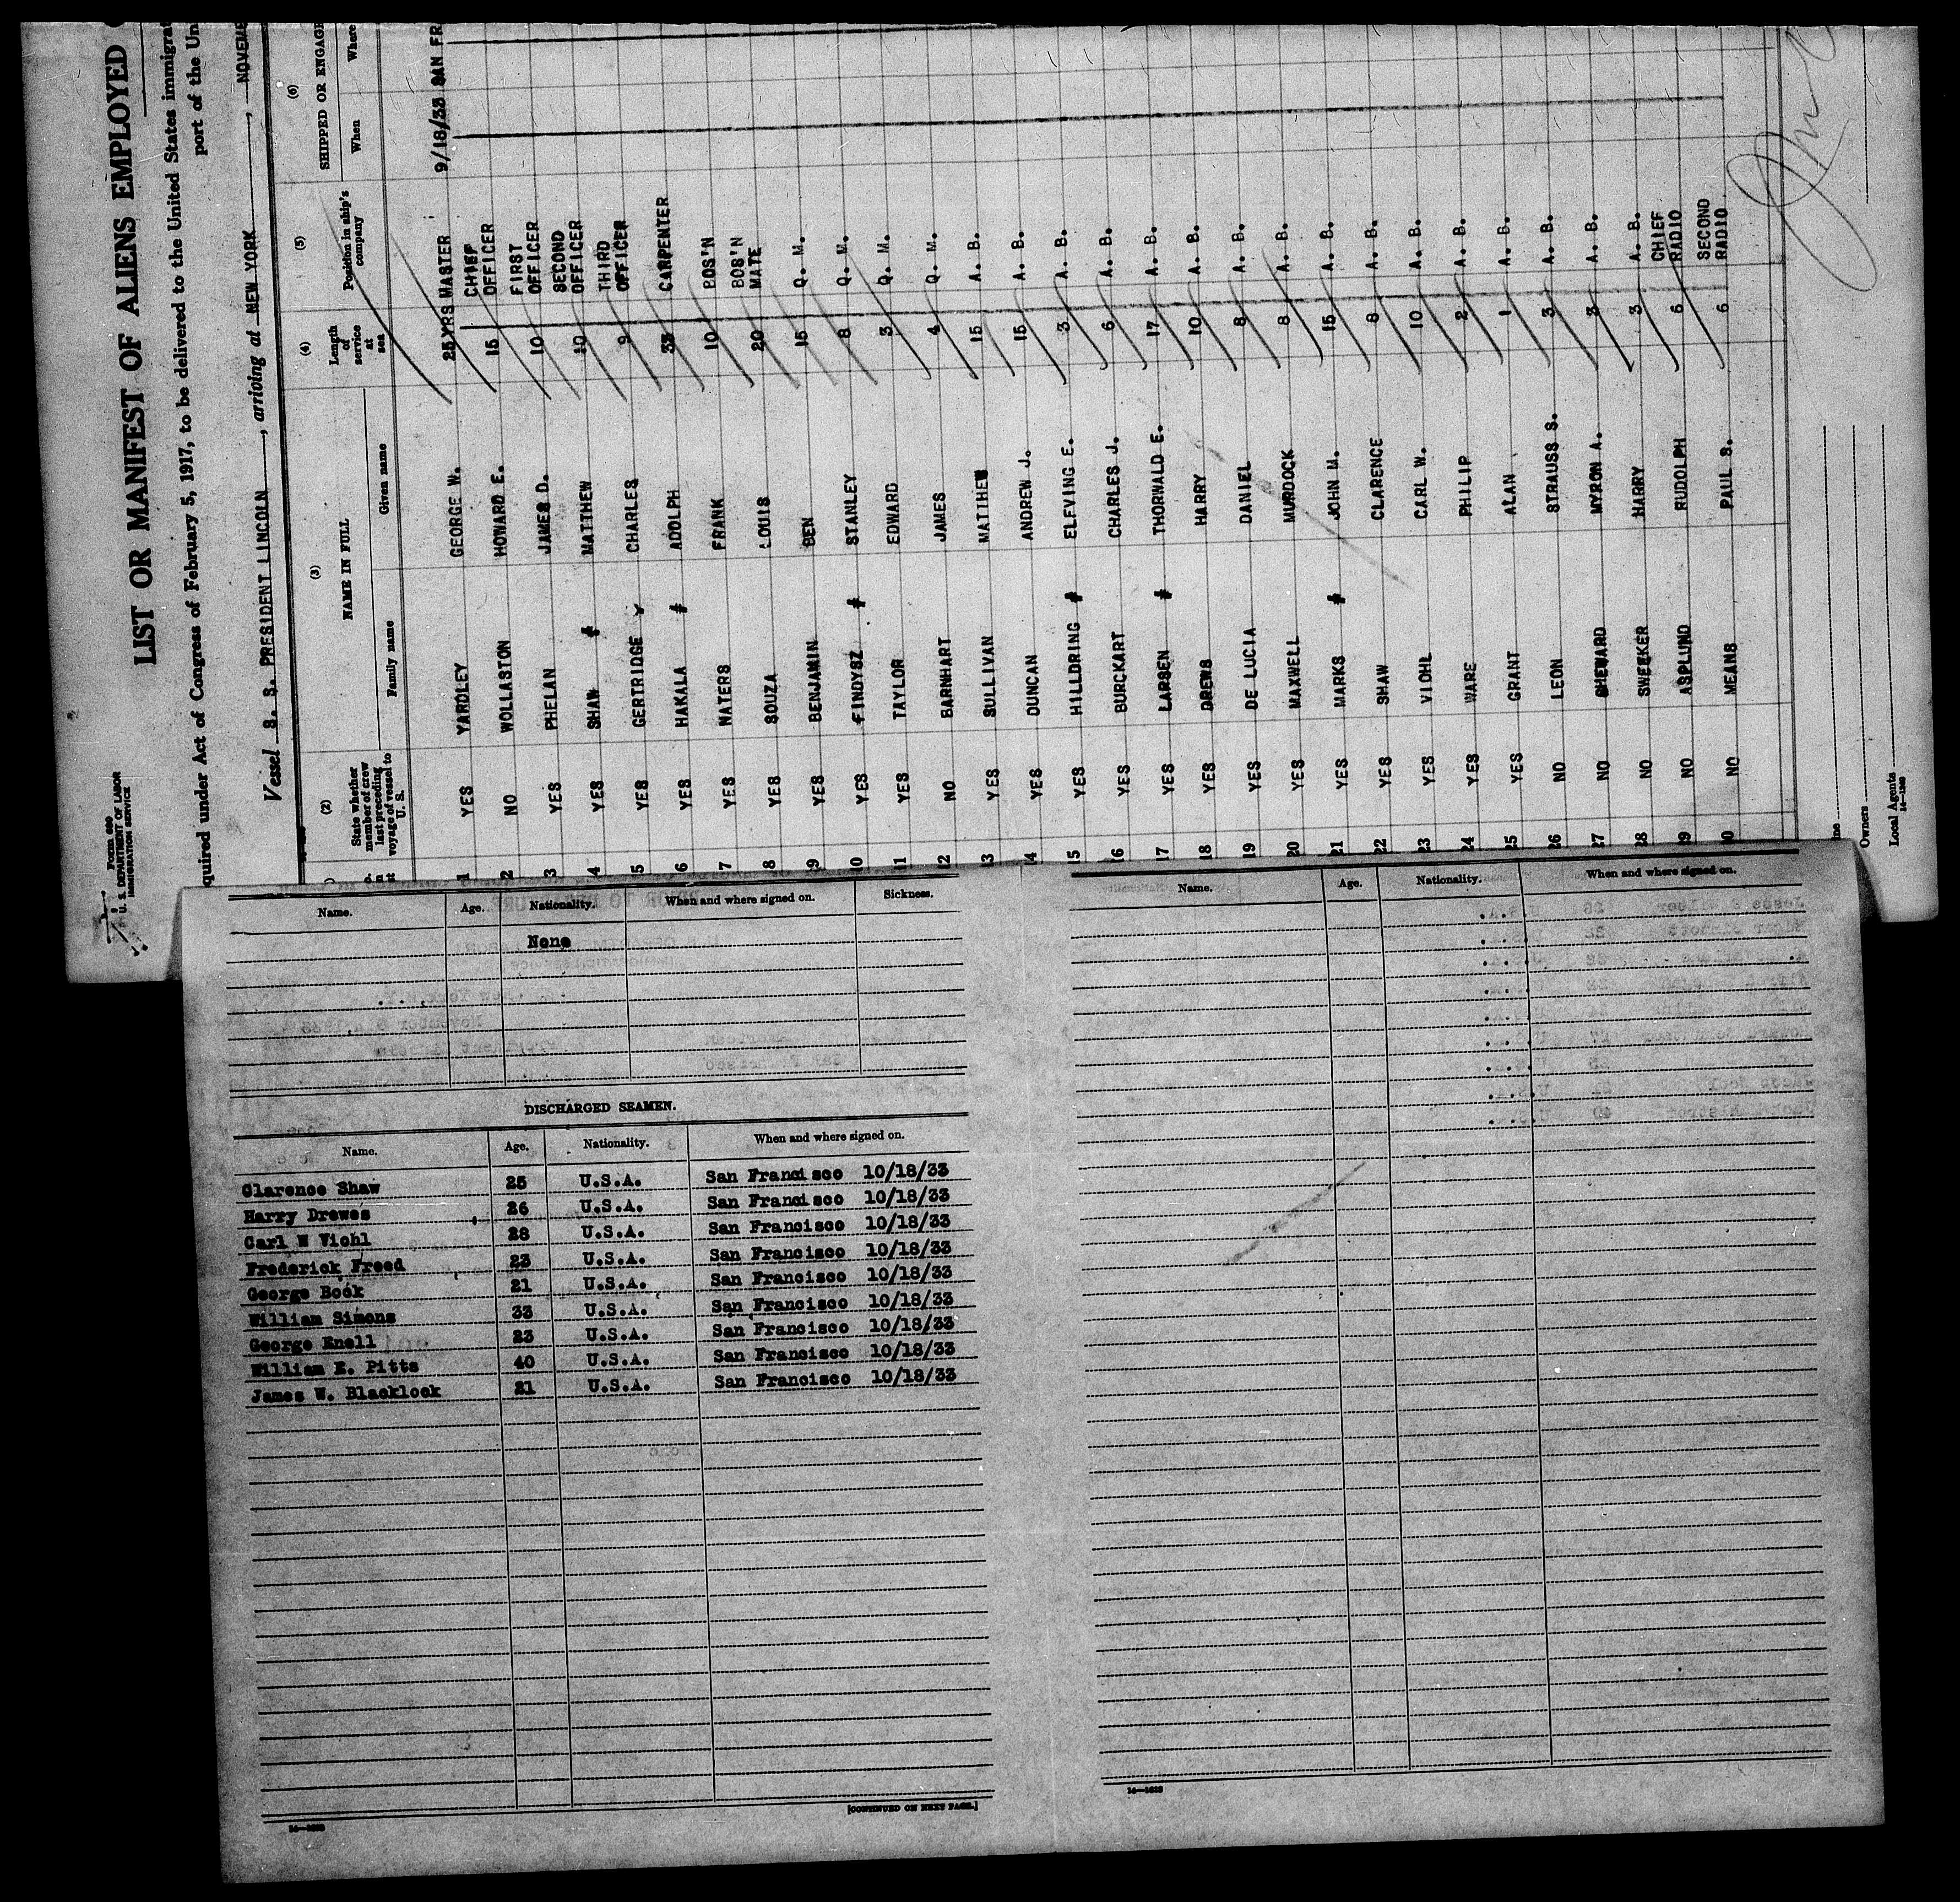 LIST OR MANIFEST OF ALIENS EMPLOYED
Form 680
U. S. DEPARTMENT OF LABOR
IMMIGRATION SERVICE
quired under Act of Congress of February 5, 1917, to be delivered to the United States immigrat
port of the Un
Vessel S. S. PRESIDENT LINCOLN, arriving at NEW YORK, NOVEME
(2) (3) (4) (5) (6)
State whether member of crew last preceding voyage of vessel to U. S. NAME IN FULL Length of service at sea Position in ship's company SHIPPED OR ENGAGE
Family name Given name When Where
1 YES YARDLEY GEORGE W. 25 YRS MASTER 9/18/33 SAN FR
2 NO WOLLASTON HOWARD E. 15 CHIEF OFFICER
3 YES PHELAN JAMES D. 10 FIRST OFFICER
4 YES SHAW # MATTHEW 10 SECOND OFFICER
5 YES GERTRIDGE CHARLES 9 THIRD OFFICER
6 YES HAKALA # ADOLPH 33 CARPENTER
7 YES NATERS FRANK 10 BOS'N
8 YES SOUZA LOUIS 20 BOS'N MATE
9 YES BENJAMIN BEN 15 Q. M.
10 YES FINDYSZ # STANLEY 8 Q. M.
11 YES TAYLOR EDWARD 3 Q. M.
12 NO BARNHART JAMES 4 Q. M.
13 YES SULLIVAN MATTHEW 15 A. B.
14 YES DUNCAN ANDREW J. 15 A. B.
15 YES HILLDRING # ELFVING E. 3 A. B.
16 YES BURCKART CHARLES J. 6 A. B.
17 YES LARSEN # THORWALD E. 17 A. B.
18 YES DREWS HARRY 10 A. B.
19 YES DE LUCIA DANIEL 8 A. B.
20 YES MAXWELL MURDOCK 8 A. B.
21 YES MARKS # JOHN M. 15 A. B.
22 YES SHAW CLARENCE 8 A. B.
23 YES VIOHL CARL W. 10 A. B.
24 YES WARE PHILIP 2 A. B.
25 YES GRANT ALAN 1 A. B.
26 NO LEON STRAUSS S. 3 A. B.
27 NO SHEWARD MYRON A. 3 A. B.
28 NO SWEEKER HARRY 3 A. B.
29 NO ASPLUND RUDOLPH 6 CHIEF RADIO
30 NO MEANS PAUL S. 6 SECOND RADIO
Owners
Local Agents
Name. Age. Nationality. When and where signed on. Sickness.
None
DISCHARGED SEAMEN.
Name. Age. Nationality. When and where signed on.
Clarence Shaw 25 U.S.A. San Francisco 10/18/33
Harry Drewes 26 U.S.A. San Francisco 10/18/33
Carl W Viohl 28 U.S.A. San Francisco 10/18/33
Frederick Freed 23 U.S.A. San Francisco 10/18/33
George Book 21 U.S.A. San Francisco 10/18/33
William Simons 33 U.S.A. San Francisco 10/18/33
George Enell 23 U.S.A. San Francisco 10/18/33
William E. Pitts 40 U.S.A. San Francisco 10/18/33
James W. Blacklock 21 U.S.A. San Francisco 10/18/33
[CONTINUED ON NEXT PAGE.]
Name. Age. Nationality. When and where signed on.